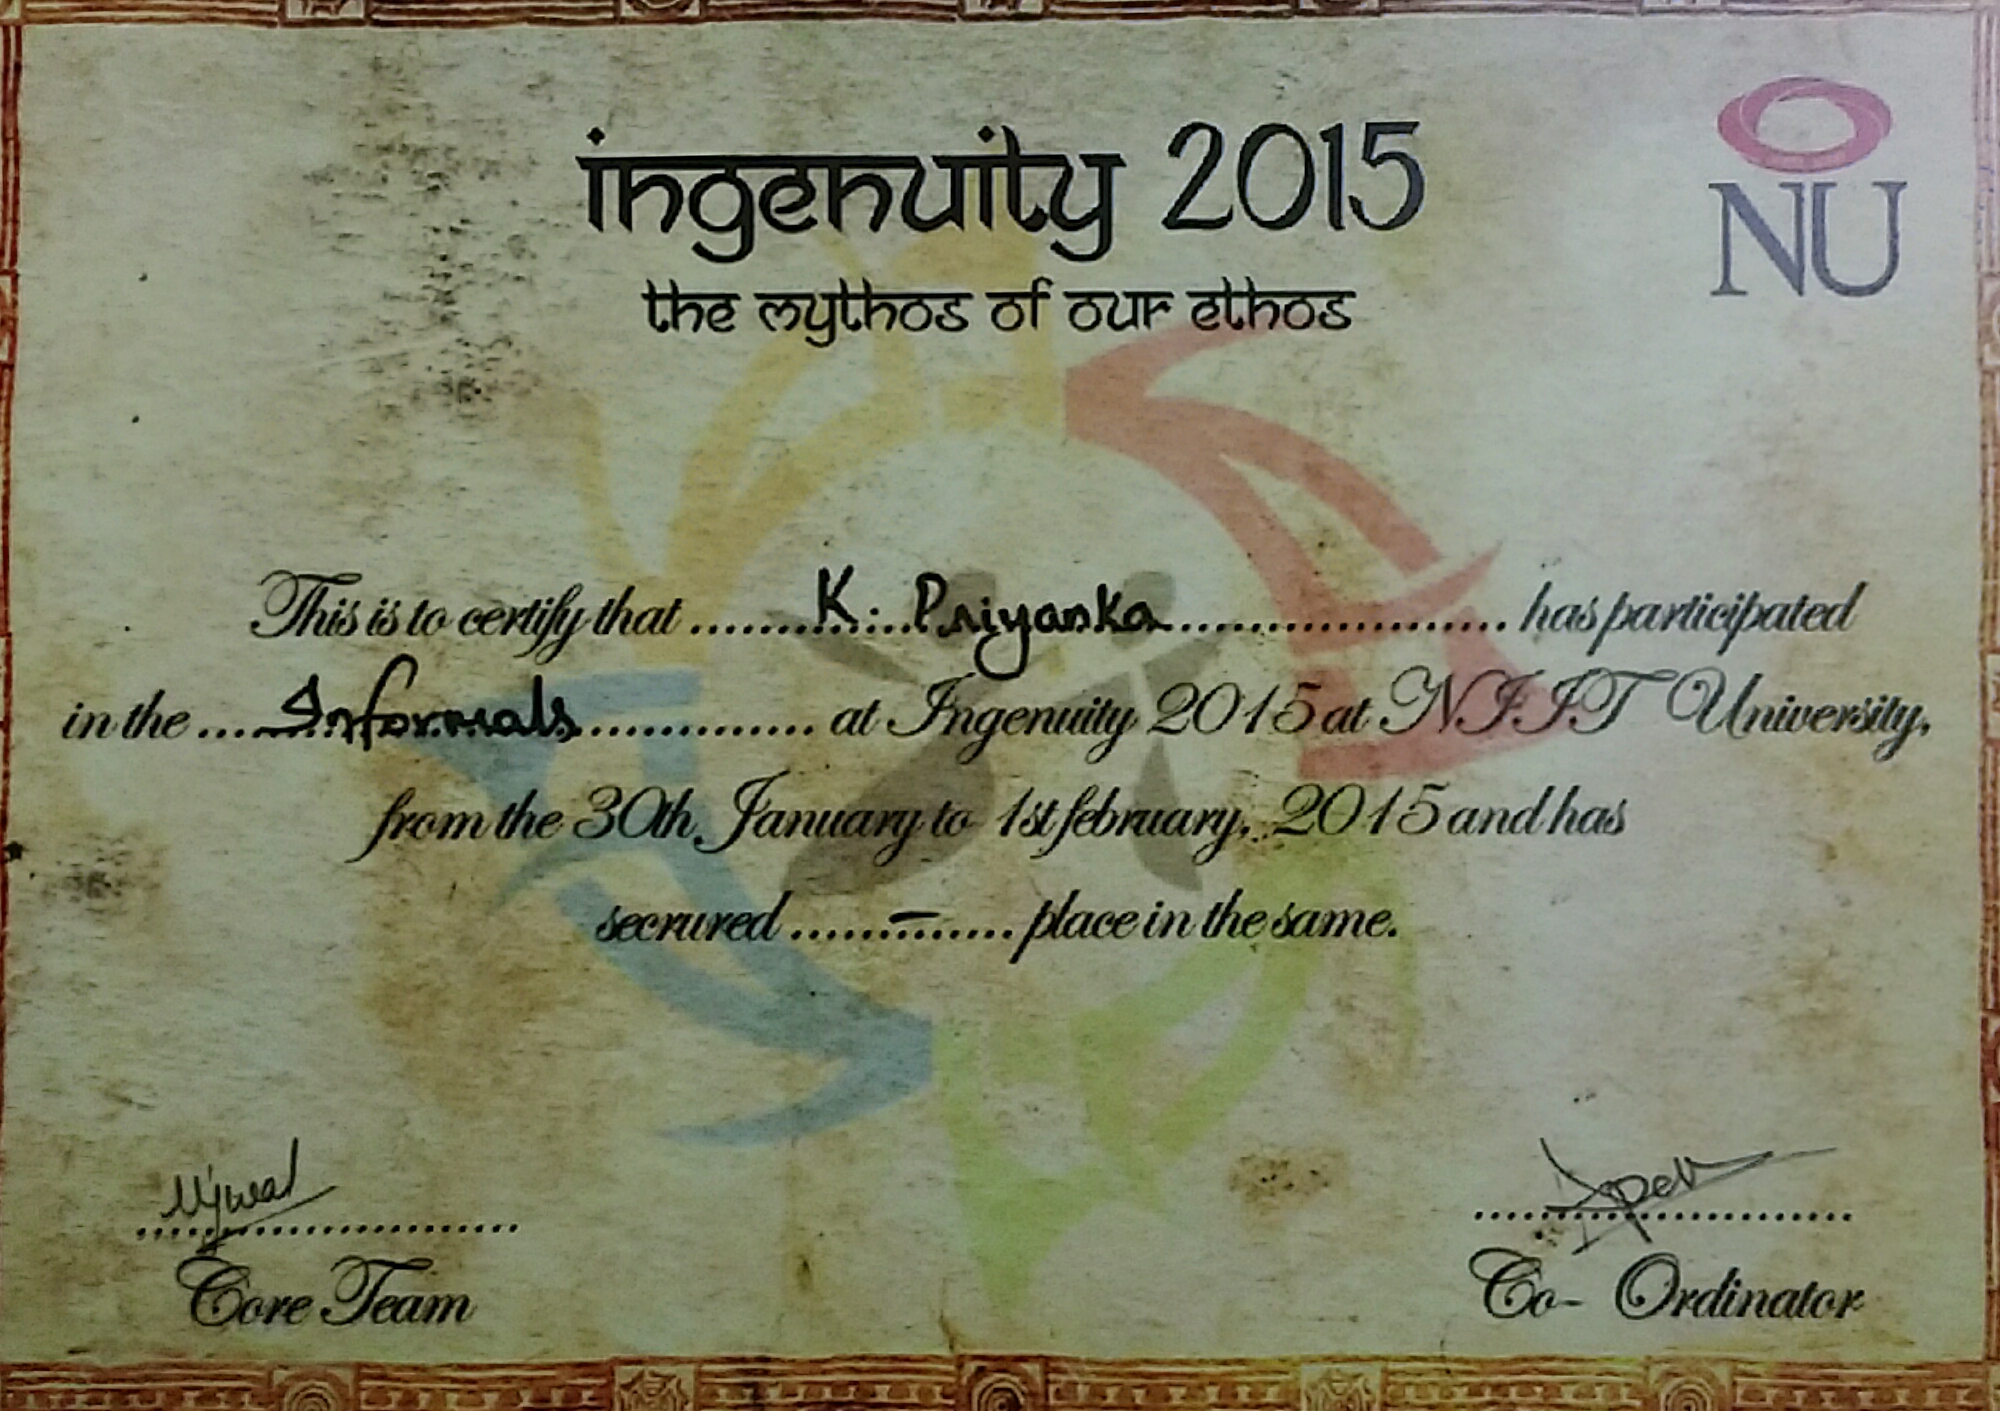 ingenuity 2015
NU
the mythos of our ethos
This is to certify that ..........K. Priyanka........................ has participated
in the ....Informals................ at Ingenuity 2015 at NIIT University,
from the 30th January to 1st february, 2015 and has
secrured .......–....... place in the same.
Ujwal
Core Team
Co- Ordinator